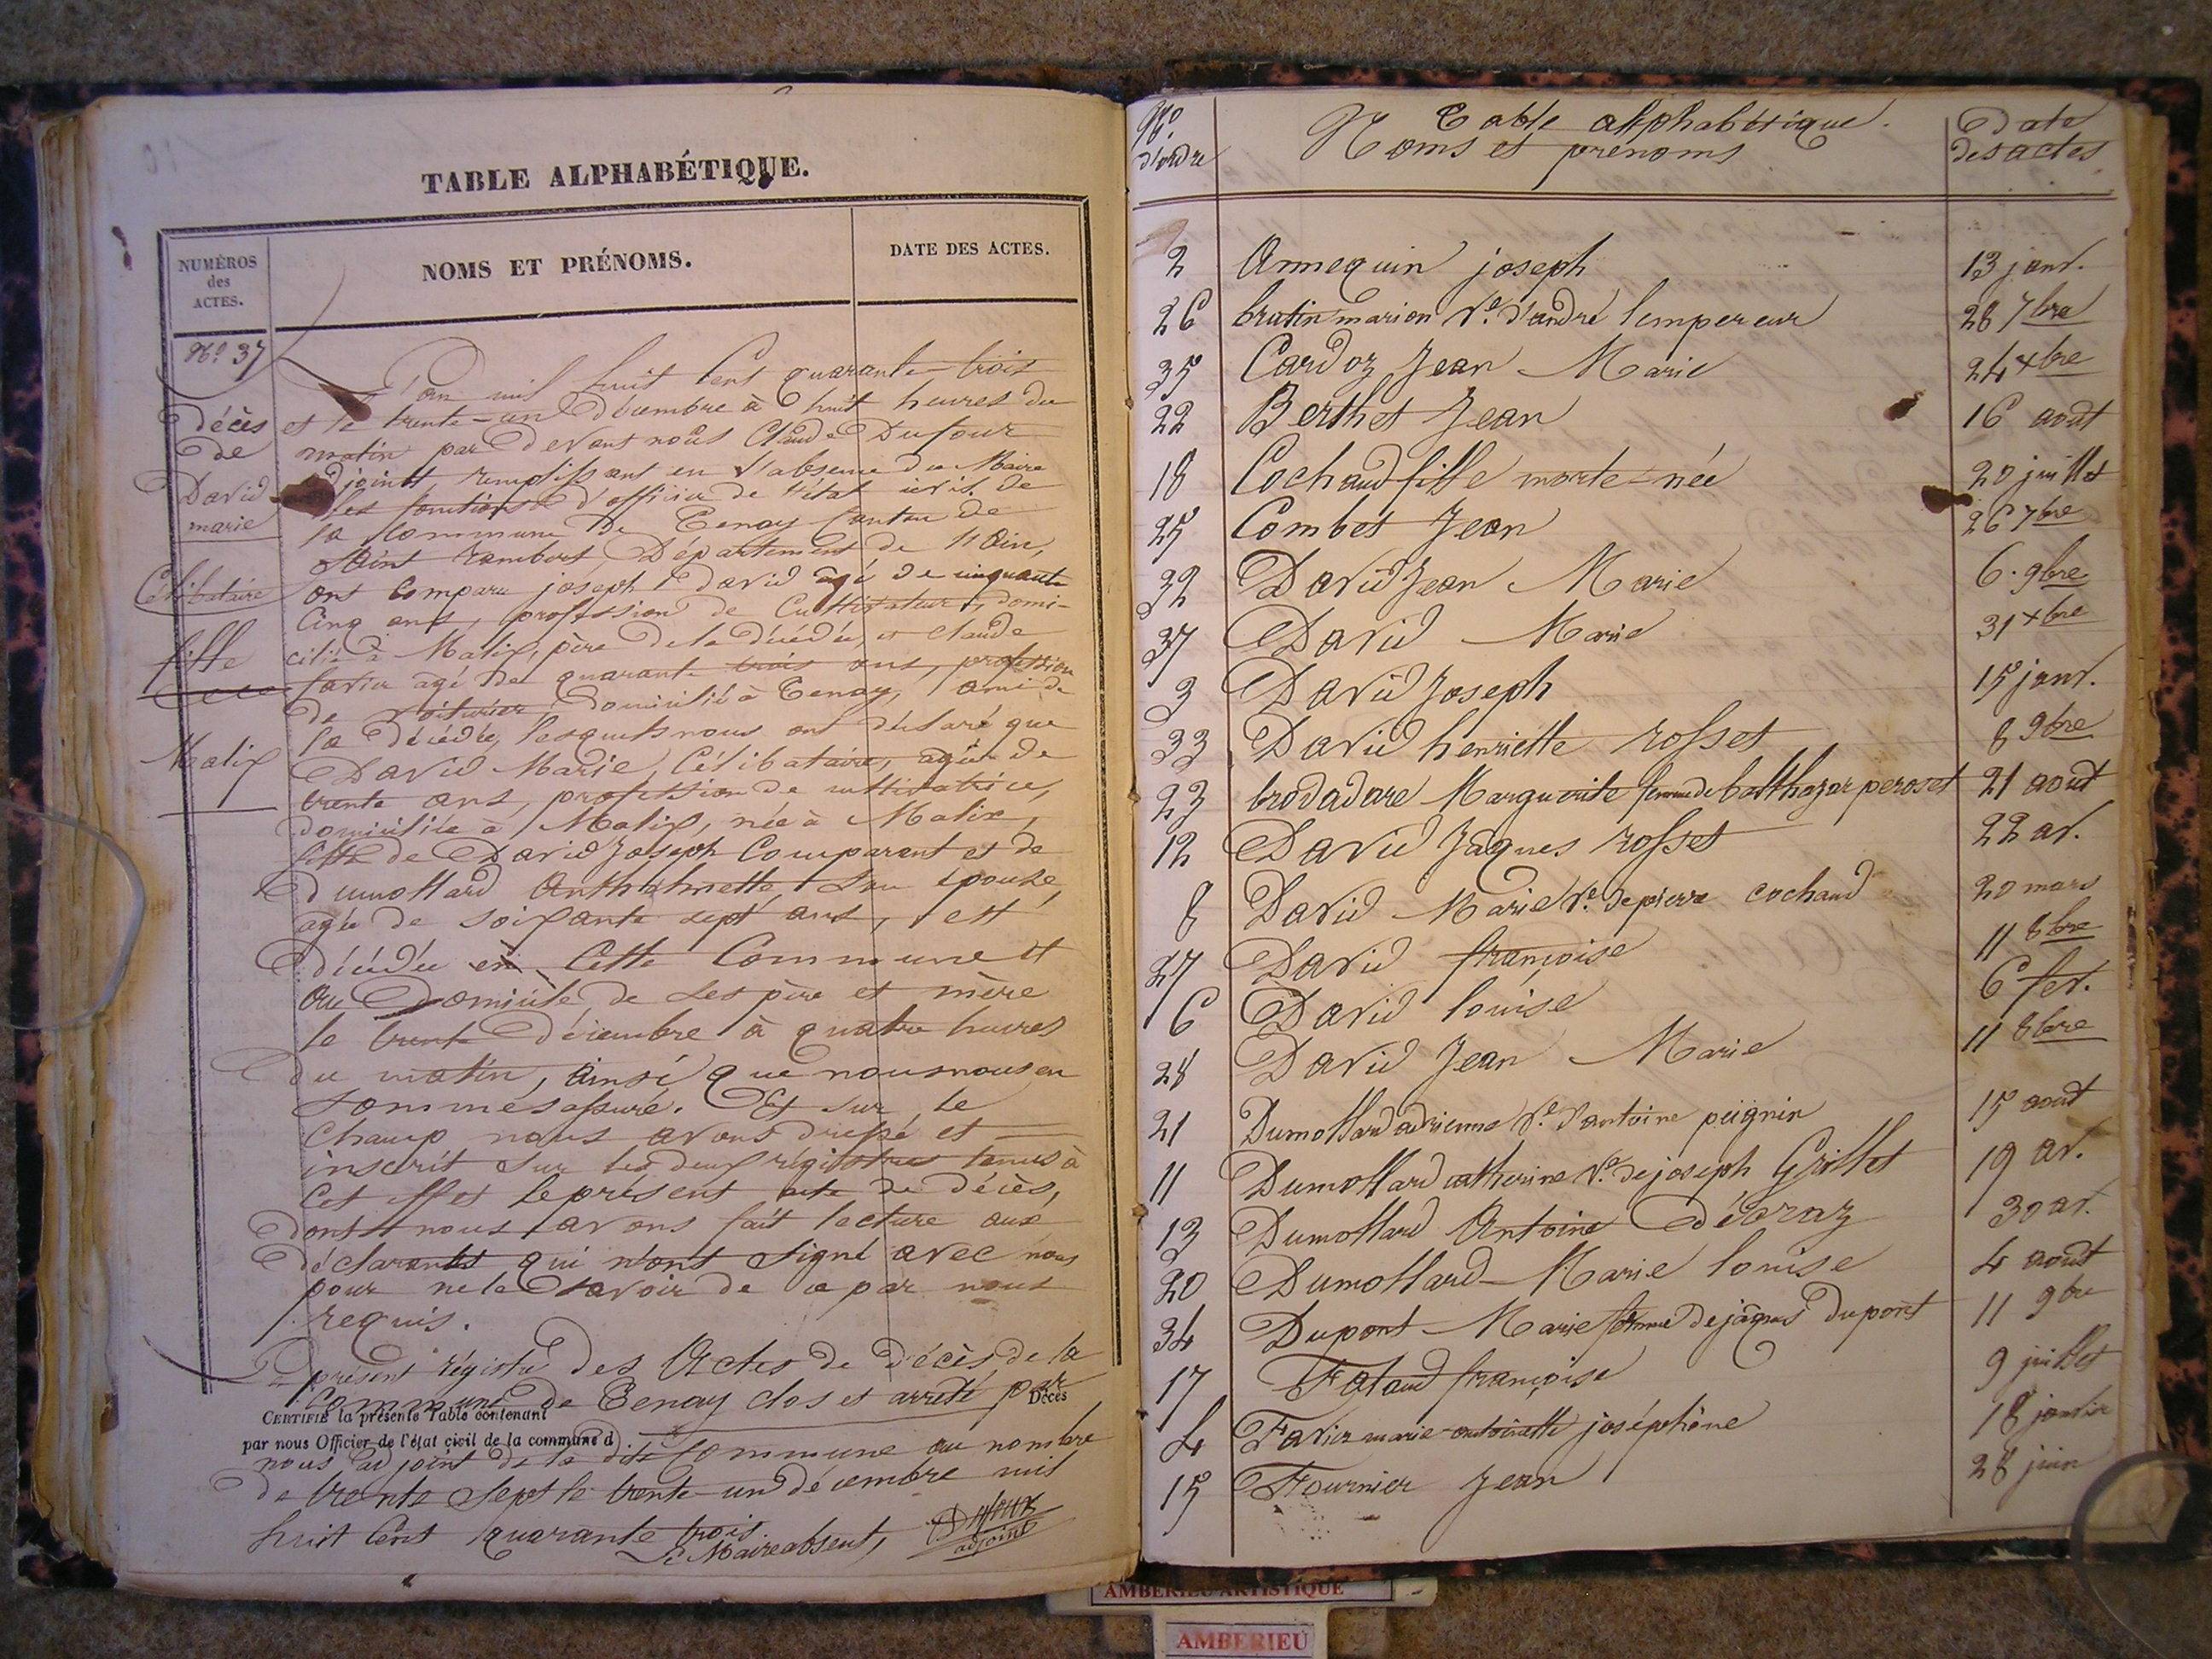 TABLE ALPHABÉTIQUE.
NUMÉROS
des
ACTES.
NOMS ET PRÉNOMS.
DATE DES ACTES.
N° 37
Décès
de
David
marie
Célibataire
fille
Malix
L'an mil huit Cent quarante-trois
et le trente-un Décembre à huit heures du
matin par Devant nous Claude Dufour
adjoint, remplissant en l'absence du Maire
les fonctions d'officier de l'état civil de
la Commune De Tenay Canton de
Saint rambert, Département de l'Ain,
ont Comparu joseph David agé de cinquante
Cinq ans, profession de Cultivateur, domi-
cilié à Malix, père de la décédée, et claude
favier agé de quarante trois ans, profession
de voiturier, domicilié à Tenay, ami de
la décédée, lesquels nous ont déclaré que
David Marie, Célibataire, agée de
trente ans, profession de cultivatrice,
domiciliée à Malix, née à Malix,
fille de David Joseph Comparant et de
Dumollard Anthelmette, son épouse,
agée de soixante sept ans, est
décédée en Cette Commune et
au Domicile de ses père et mère
le trente Décembre à quatre heures
du matin, ainsi que nous nous en
sommes assuré. Et sur le
Champ nous avons dressé et
inscrit sur les deux régistres tenus à
Cet effet le présent acte de décès,
dont nous avons fait lecture aux
déclarants qui n'ont signé avec nous
pour ne le savoir de ce par nous
requis.
Le présent régistre des Actes de Décès de la
Commune de Tenay clos et arreté par
CERTIFIÉ la présente Table contenant Décès
par nous Officier de l'état civil de la commune d
nous adjoint de la dite Commune au nombre
de trente sept le trente-un décembre mil
huit Cent quarante trois.
Le Maire absent,
Dufour
adjoint
N°
d'ordre
Table alphabétique.
Noms et prénoms
Date
des actes
2 Annequin joseph 13 janv.
26 brutin marion Ve. d'andré lempereur 28 7bre
35 Cardoz Jean Marie 24 xbre
22 Berthet Jean 16 août
18 Cochaud fille morte-née 20 juillet
25 Combet Jean 26 7bre
32 David Jean Marie 6. 9bre
37 David Marie 31 xbre
3 David Joseph 15 janv.
33 David henriette rosset 8 9bre
23 brodadare Marguerite femme de balthazar peroset 21 août
12 David Jâques rosset 22 av.
8 David Marie Ve. de pierre cochaud 20 mars
27 David françoise 11 8bre
6 David louise 6 fév.
28 David Jean Marie 11 8bre
21 Dumollard adrienne Ve. d'antoine peignin 15 août
11 Dumollard catherine Ve. de joseph Grillet 19 av.
13 Dumollard Antoine Décraz 30 av.
20 Dumollard Marie louise 4 août
34 Dupont Marie femme de jâques dupont 11 9bre
17 Fataud françoise 9 juillet
4 Favier marie-antoinette joséphine 18 janvier
15 Fournier Jean 28 juin
AMBERIEU ARTISTIQUE
AMBERIEU